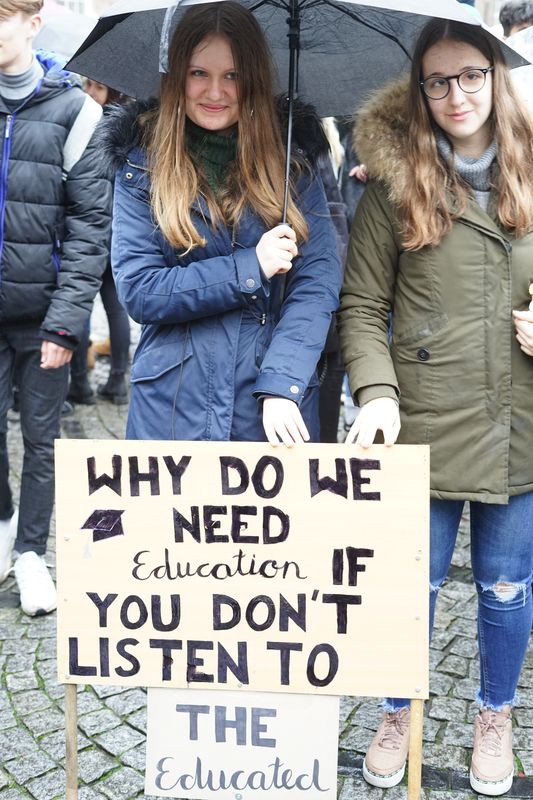 WHY DO WE
NEED
Education IF
YOU DON'T
LISTEN TO
THE
Educated